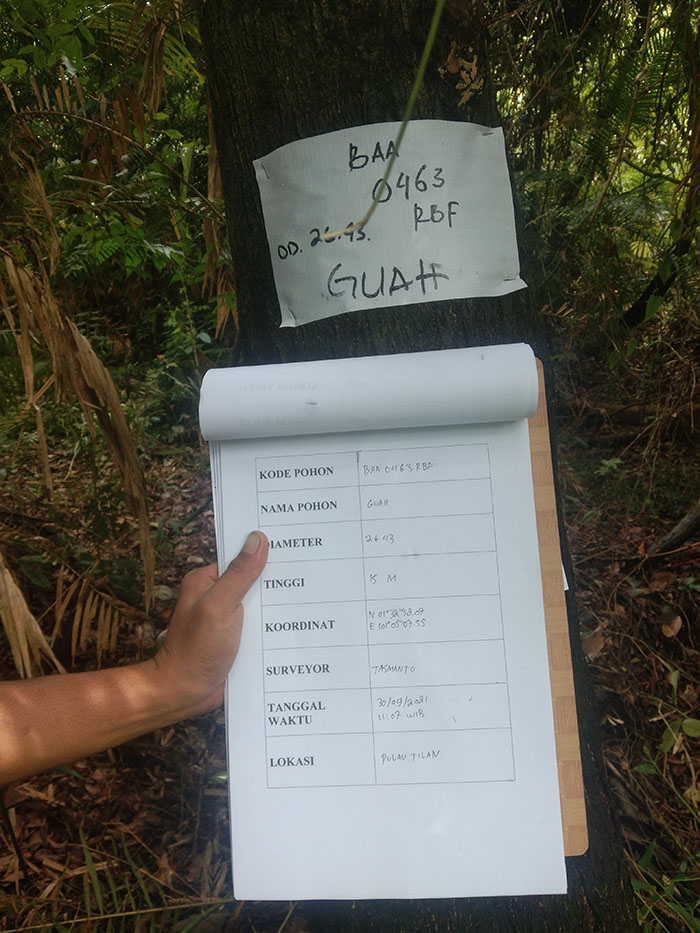 BAA
0463
RBF
OD. 26.43.
GUAH
KODE POHON BAA 0463 RBF
NAMA POHON GUAH
DIAMETER 26.43
TINGGI 15 M
KOORDINAT N 01°32'32.09
E 101°05'03.55
SURVEYOR TASMANTO
TANGGAL 30/09/2021
WAKTU 11:07 WIB
LOKASI PULAU TILAN